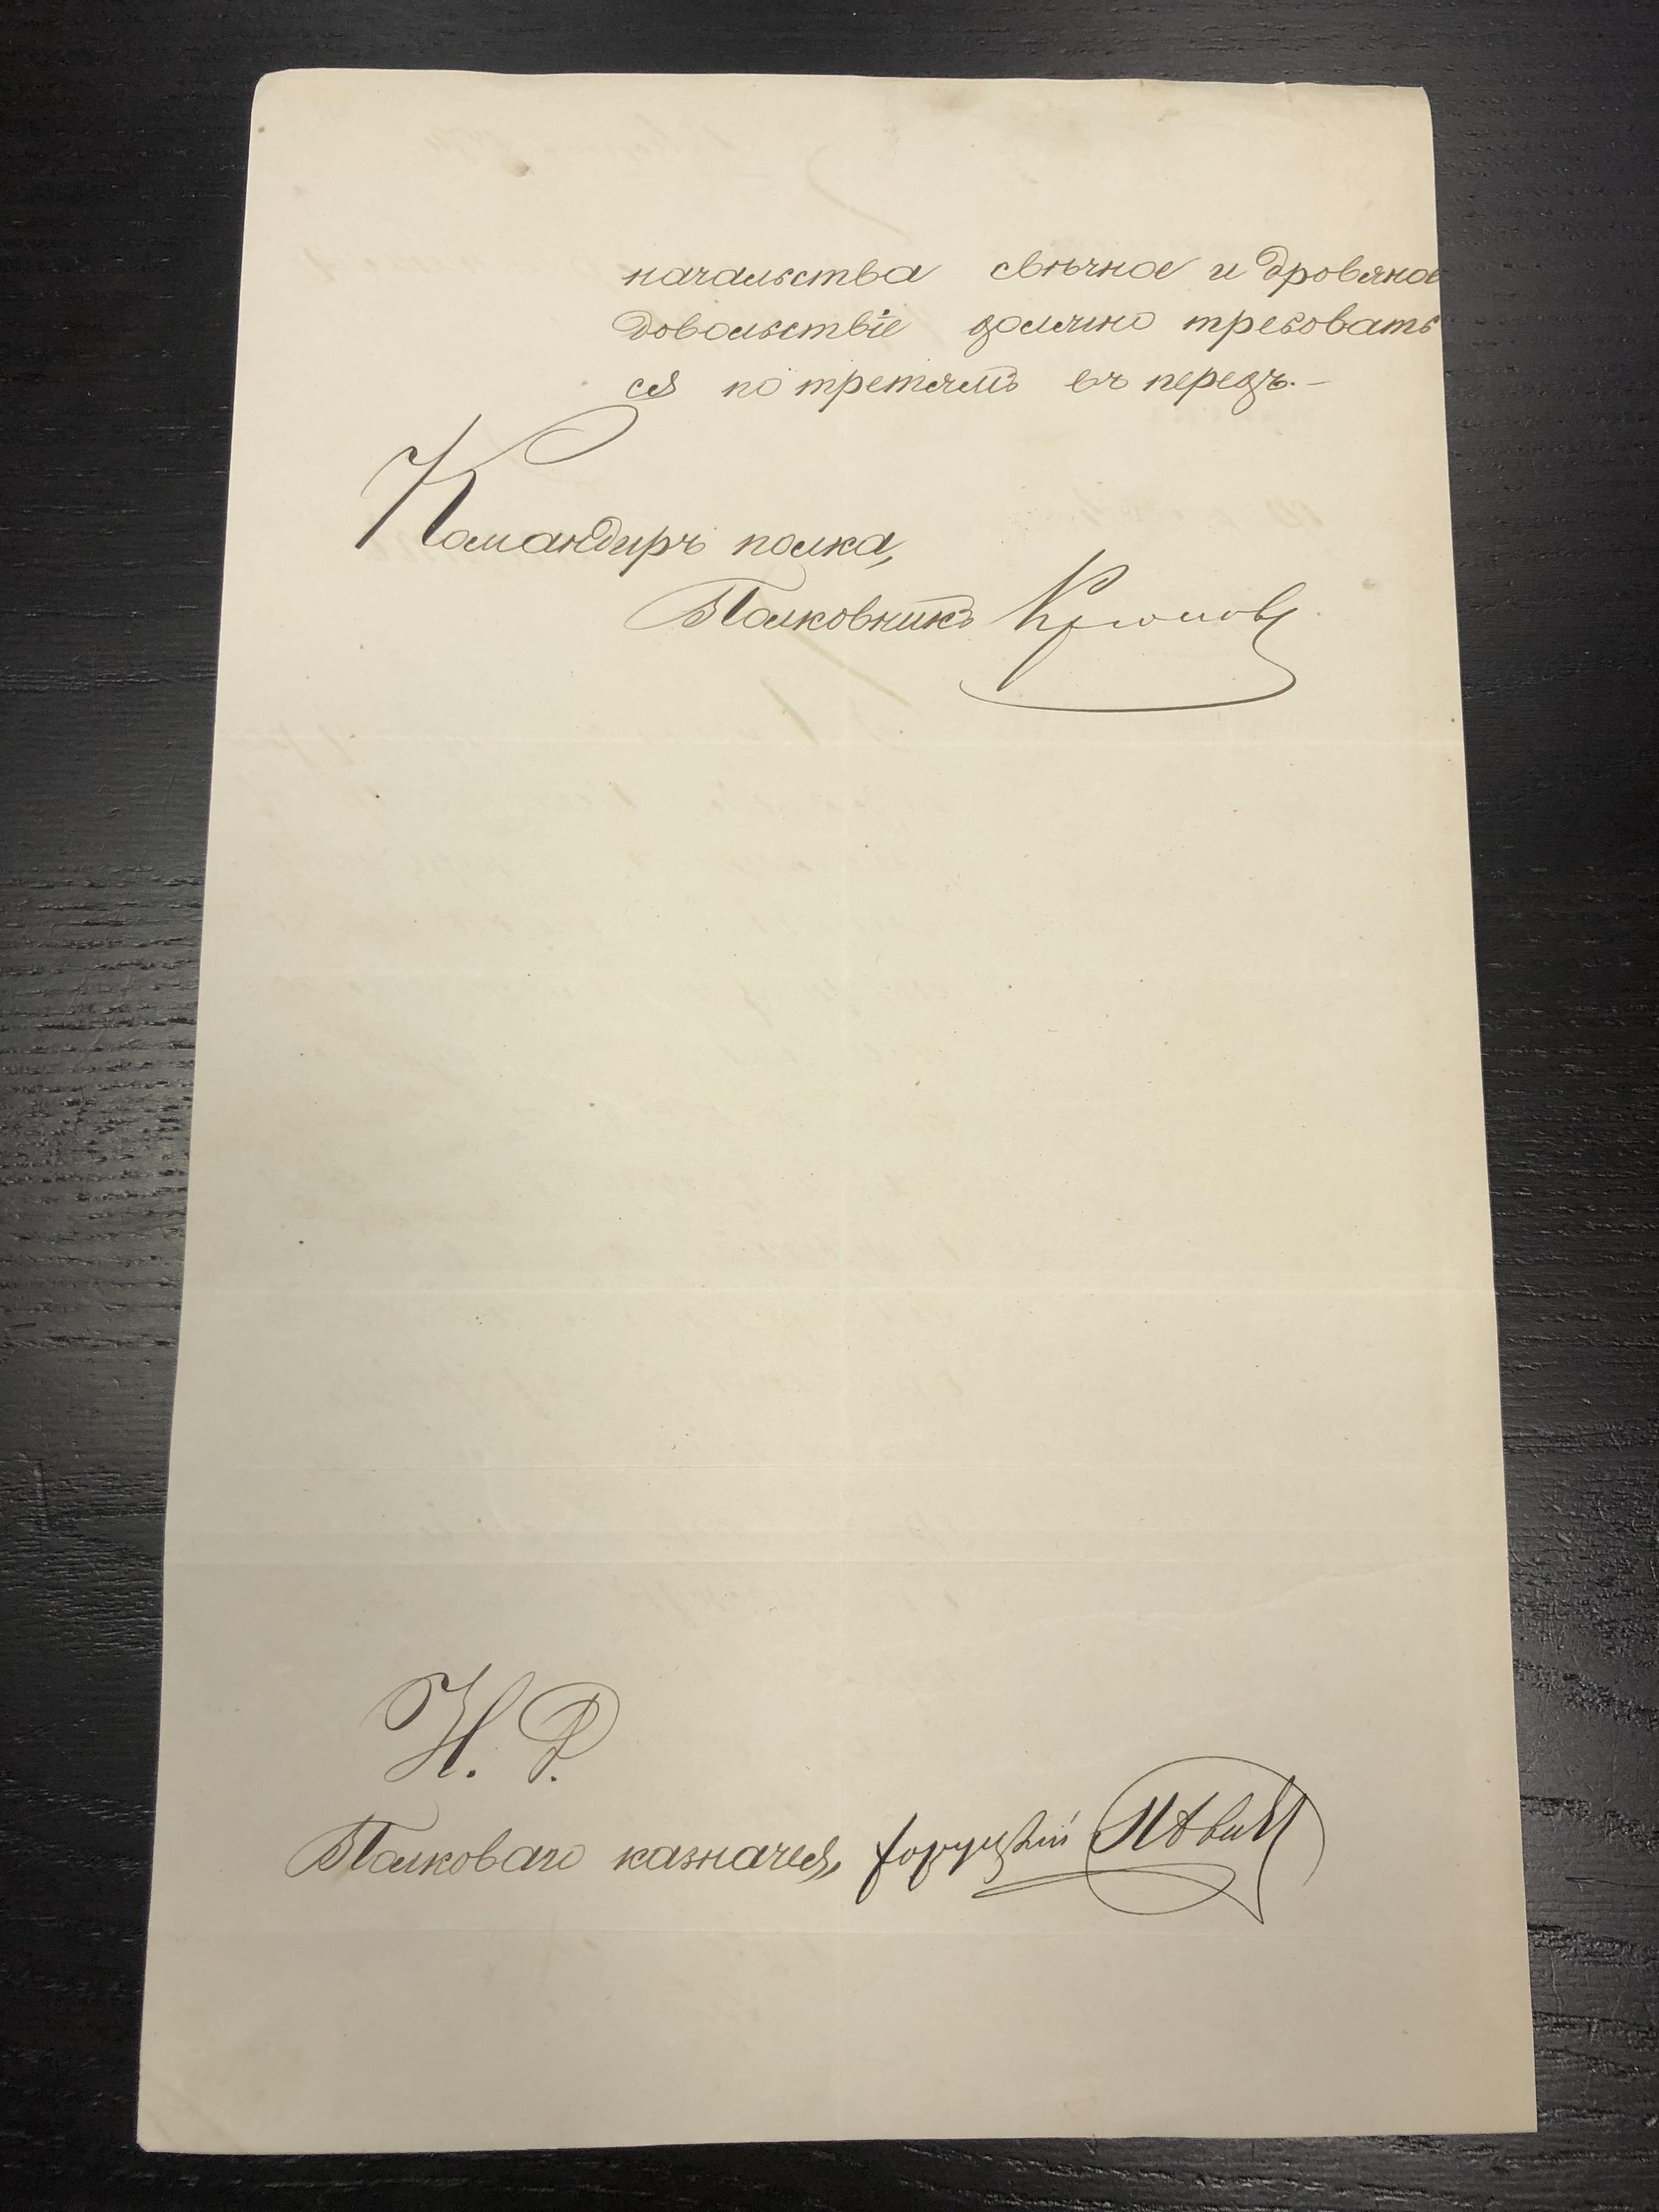 начальства свѣчное и дровяное
довольствіе должно требовать
ся по третямъ въ передъ.—
Командиръ полка,
Полковникъ
И. Д.
Полковаго казначея, хорунжій